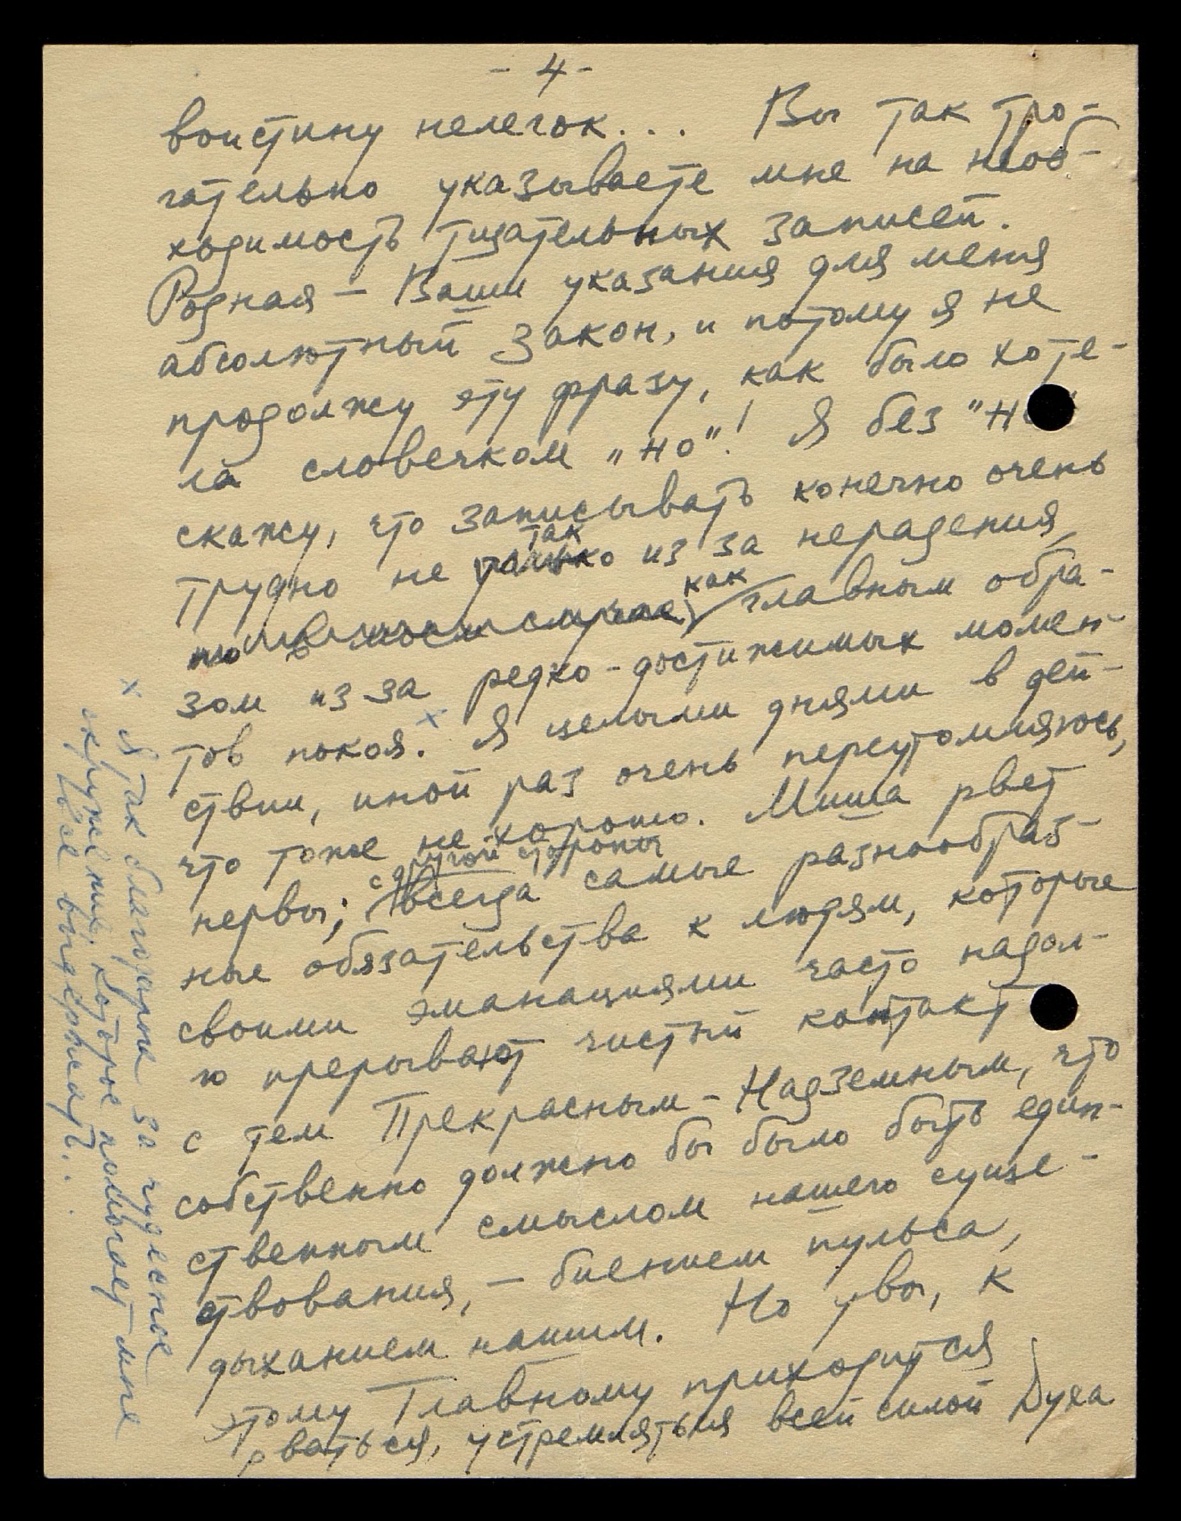 - 4 -
воистину нелегок... Вы так тро-
гательно указываете мне на необ-
ходимость тщательных записей.
Родная - Ваши указания для меня
абсолютный закон, и потому я не
продолжу эту фразу, как было хоте-
ла словечком "но"! Я без "но"
скажу, что записывать конечно очень
так
трудно не только из за нерадения,
как
главным обра-
зом из за редко-достижимых момен-
тов покоя. x Я целыми днями в дей-
ствии, иной раз очень переутомляюсь,
что тоже не хорошо. Миша рвет
с другой стороны
нервы; всегда самые разнообраз-
ные обязательства к людям, которые
своими эманациями часто надол-
го прерывают чистый контакт
с тем Прекрасным - Надземным, что
собственно должно бы было быть един-
ственным смыслом нашего суще-
ствования, - биением пульса,
дыханием нашим. Но увы, к
этому Главному приходится
рваться, устремляться всей силой Духа
x Я так благодарна за чудесное
окружение, которое помогает мне
все выдержать...